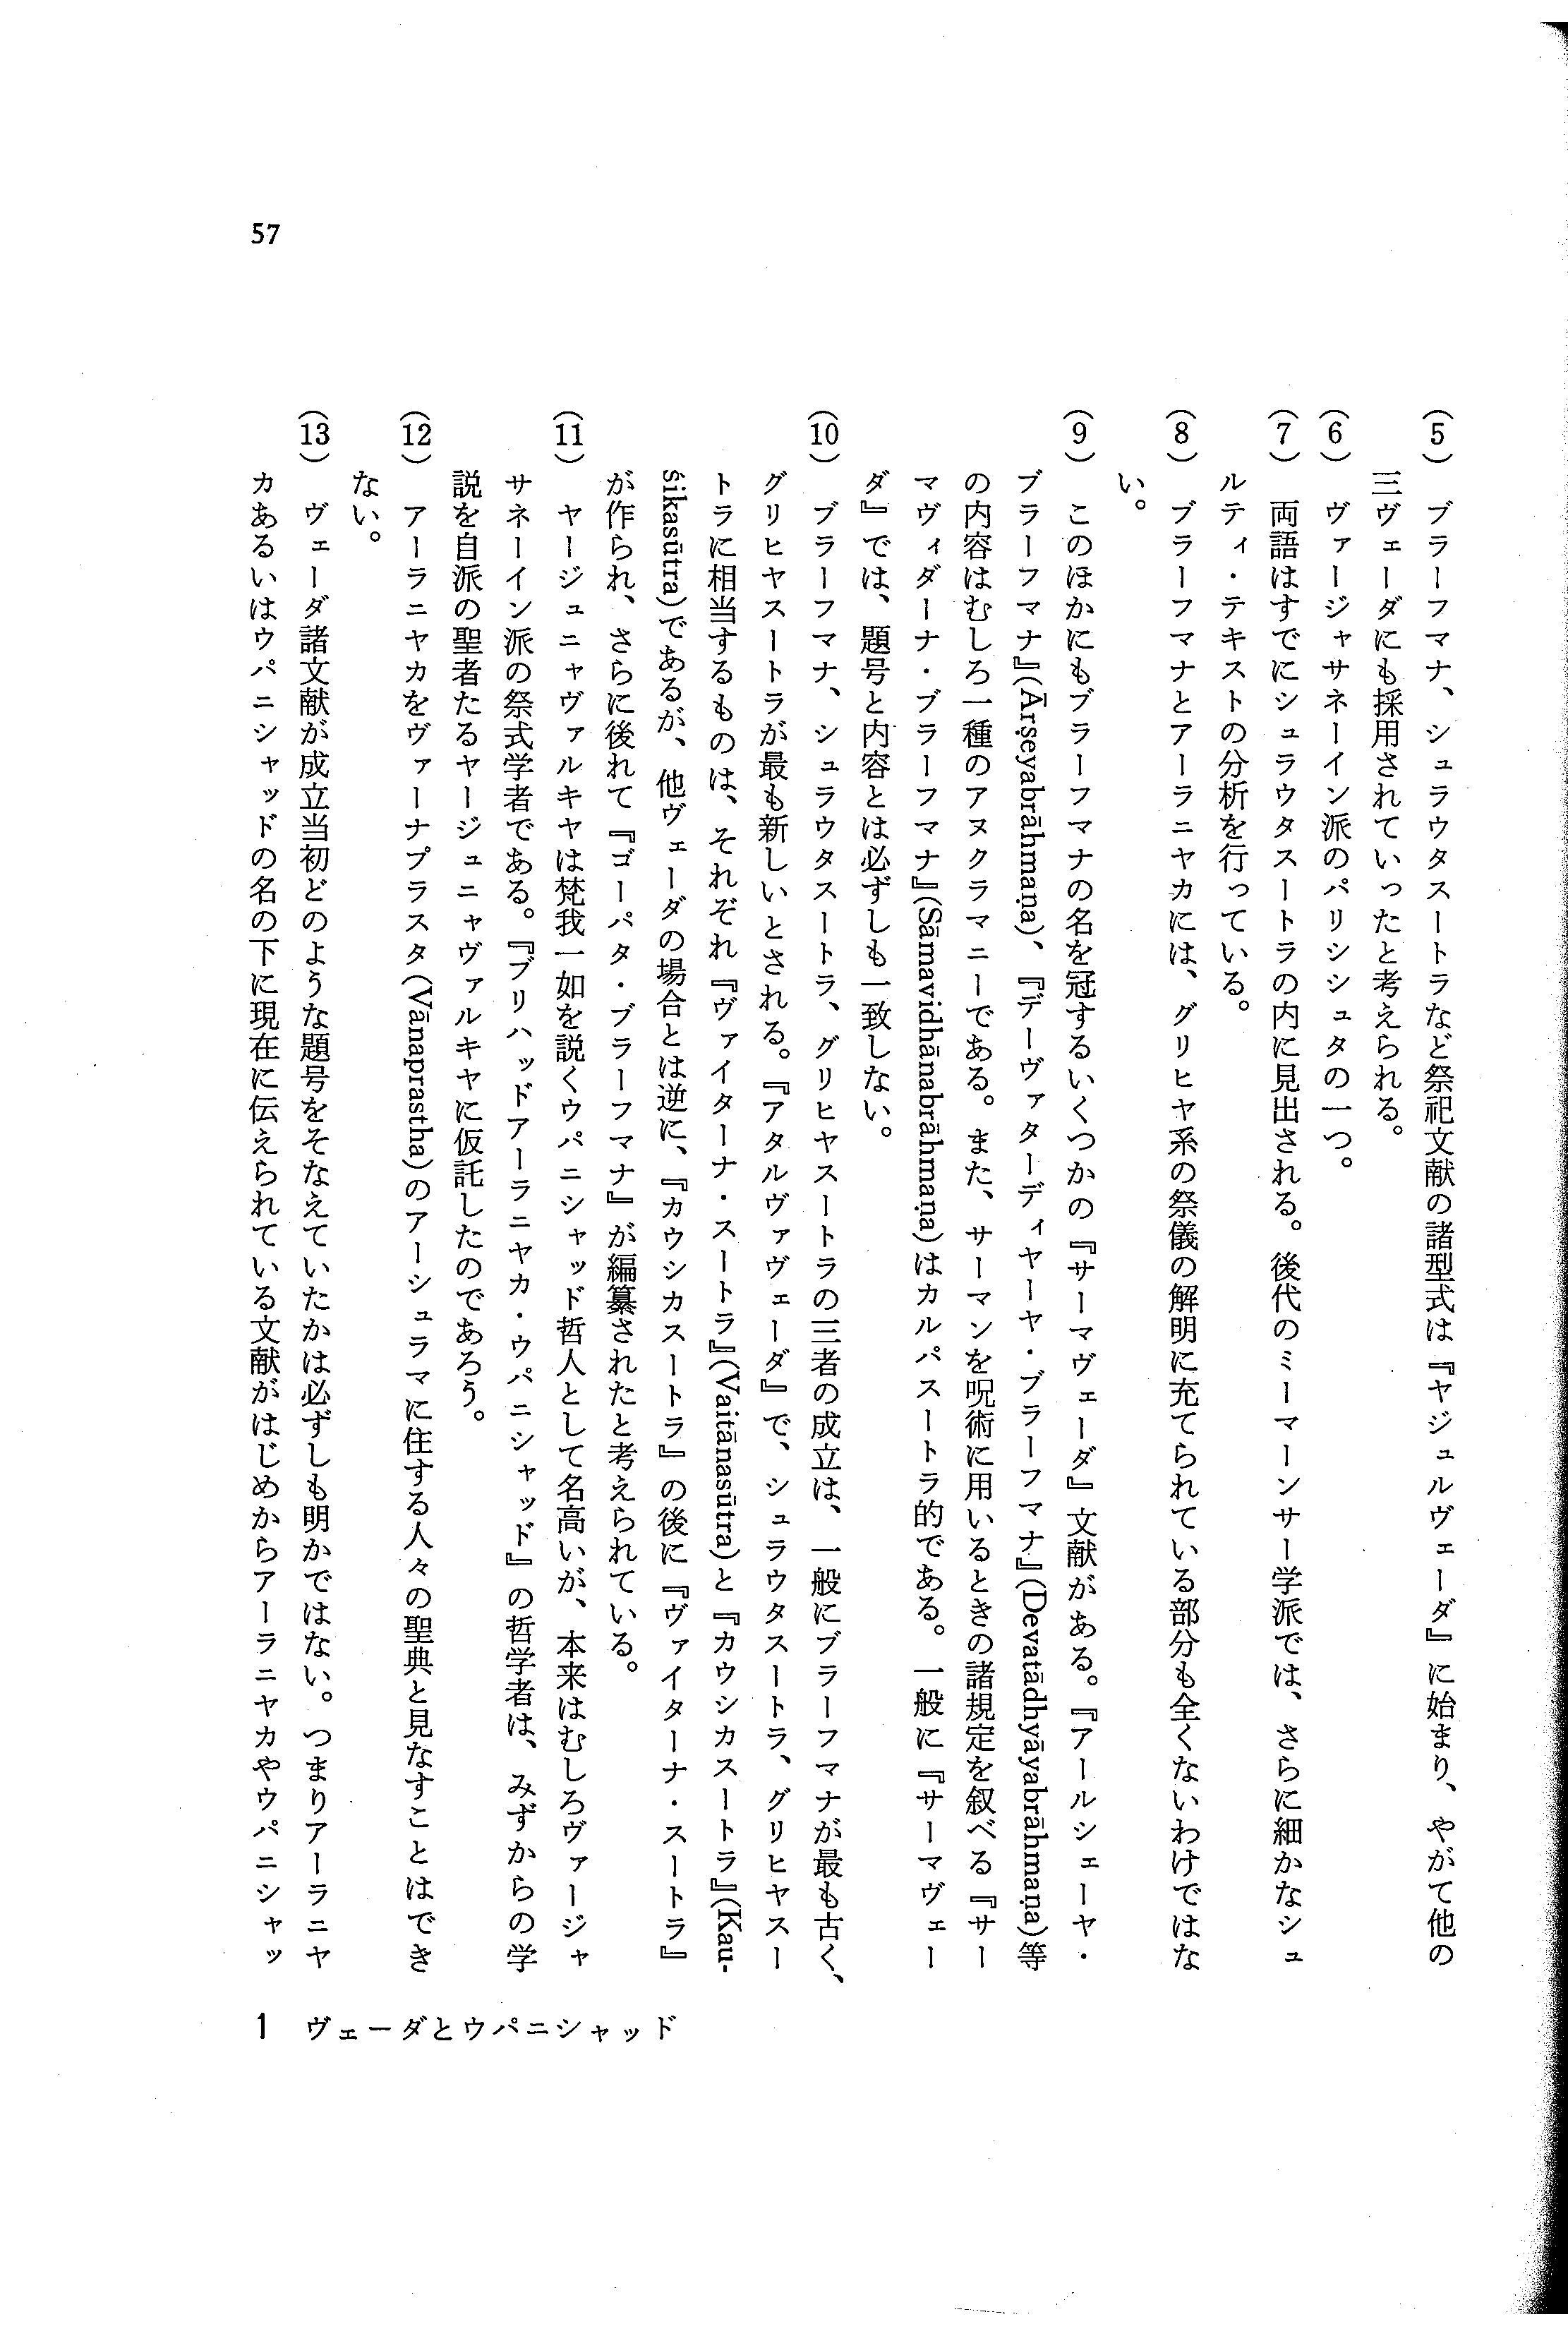 (5) ブラーフマナ、シュラウタスートラなど祭祀文献の諸型式は『ヤジュルヴェーダ』に始まり、やがて他の
三ヴェーダにも採用されていったと考えられる。
(6) ヴァージャサネーイン派のパリシシュタの一つ。
(7) 両語はすでにシュラウタスートラの内に見出される。後代のミーマーンサー学派では、さらに細かなシュ
ルティ・テキストの分析を行っている。
(8) ブラーフマナとアーラニヤカには、グリヒヤ系の祭儀の解明に充てられている部分も全くないわけではな
い。
(9) このほかにもブラーフマナの名を冠するいくつかの『サーマヴェーダ』文献がある。『アールシェーヤ・
ブラーフマナ』(Ārṣeyabrāhmaṇa)、『デーヴァターディヤーヤ・ブラーフマナ』(Devatādhyāyabrāhmaṇa)等
の内容はむしろ一種のアヌクラマニーである。また、サーマンを呪術に用いるときの諸規定を叙べる『サー
マヴィダーナ・ブラーフマナ』(Sāmavidhānabrāhmaṇa)はカルパスートラ的である。一般に『サーマヴェー
ダ』では、題号と内容とは必ずしも一致しない。
(10) ブラーフマナ、シュラウタスートラ、グリヒヤスートラの三者の成立は、一般にブラーフマナが最も古く、
グリヒヤスートラが最も新しいとされる。『アタルヴァヴェーダ』で、シュラウタスートラ、グリヒヤスー
トラに相当するものは、それぞれ『ヴァイターナ・スートラ』(Vaitānasūtra)と『カウシカスートラ』(Kau-
śikasūtra)であるが、他ヴェーダの場合とは逆に、『カウシカスートラ』の後に『ヴァイターナ・スートラ』
が作られ、さらに後れて『ゴーパタ・ブラーフマナ』が編纂されたと考えられている。
(11) ヤージュニャヴァルキヤは梵我一如を説くウパニシャッド哲人として名高いが、本来はむしろヴァージャ
サネーイン派の祭式学者である。『ブリハッドアーラニヤカ・ウパニシャッド』の哲学者は、みずからの学
説を自派の聖者たるヤージュニャヴァルキヤに仮託したのであろう。
(12) アーラニヤカをヴァーナプラスタ(Vānaprastha)のアーシュラマに住する人々の聖典と見なすことはでき
ない。
(13) ヴェーダ諸文献が成立当初どのような題号をそなえていたかは必ずしも明かではない。つまりアーラニヤ
カあるいはウパニシャッドの名の下に現在に伝えられている文献がはじめからアーラニヤカやウパニシャッ
57
1 ヴェーダとウパニシャッド